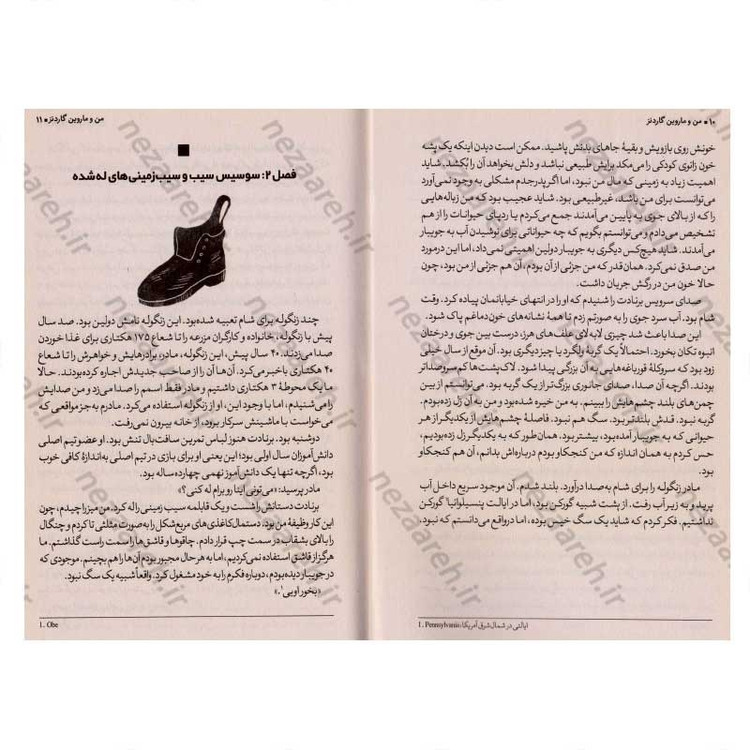 ۱۰ ▪ من و ماروین گاردنز
خونش روی بازویش و بقیهٔ جاهای بدنش پاشید. ممکن است دیدن اینکه یک پشه
خون زانوی کودکی را می‌مکد برایش طبیعی نباشد و دلش بخواهد آن را بکشد. شاید
اهمیت زیاد به زمینی که مال من نبود، اما اگر پدرجدم مشکلی به وجود نمی‌آورد
می‌توانست برای من باشد، غیرطبیعی بود. شاید عجیب بود که من زباله‌هایی
را که از بالای جوی به پایین می‌آمدند جمع می‌کردم یا ردپای حیوانات را از هم
تشخیص می‌دادم و می‌توانستم بگویم که چه حیواناتی برای نوشیدن آب به جویبار
می‌آمدند. شاید هیچ‌کس دیگری به جویبار دولین اهمیتی نمی‌داد، اما این درمورد
من صدق نمی‌کرد. همان‌قدر که من جزئی از آن بودم، آن هم جزئی از من بود، چون
حالا خون من در رگش جریان داشت.
صدای سرویس برنادت را شنیدم که او را در انتهای خیابانمان پیاده کرد. وقت
شام بود. آب سرد جوی را به صورتم زدم تا همهٔ نشانه‌های خون‌دماغم پاک شود.
این صدا باعث شد چیزی لابه‌لای علف‌های هرز، درست بین جوی و درختان
انبوه تکان بخورد. احتمالاً یک گربهٔ ولگرد یا چیز دیگری بود. آن موقع از سال خیلی
زود بود که سروکلهٔ قورباغه‌هایی به آن بزرگی پیدا شود. لاک‌پشت‌ها کم‌سروصداتر
بودند. اگرچه آن صدا، صدای جانوری بزرگ‌تر از یک گربه بود. می‌توانستم از بین
چمن‌های بلند چشم‌هایش را ببینم. به من خیره شده بود و من به آن زل زده بودم.
گربه نبود. قدش بلندتر بود. سگ هم نبود. فاصلهٔ چشم‌هایش از یکدیگر از هر
حیوانی که به جویبار آمده بود، بیشتر بود. همان‌طور که به یکدیگر زل زده بودیم،
حس کردم به همان اندازه که من کنجکاو بودم درباره‌اش بدانم، آن هم کنجکاو
بود.
مادر زنگوله را برای شام به‌صدا درآورد. بلند شدم. آن موجود سریع داخل آب
پرید و به زیر آب رفت. از پشت شبیه گورکن بود. اما در ایالت پنسیلوانیا¹ گورکن
نداشتیم. فکر کردم که شاید یک سگ خیس بوده، اما درواقع می‌دانستم که نبود.
1. Pennsylvania: ایالتی در شمال شرق آمریکا
من و ماروین گاردنز ▪ ۱۱
فصل ۲: سوسیس سیب و سیب‌زمینی‌های له‌شده
چند زنگوله برای شام تعبیه شده‌بود. این زنگوله نامش دولین بود. صد سال
پیش با زنگوله، خانواده و کارگران مزرعه را تا شعاع ۱۷۵ هکتاری برای غذا خوردن
صدا می‌زدند. ۴۰ سال پیش، این زنگوله، مادر، برادرهایش و خواهرش را تا شعاع
۴۰ هکتاری باخبر می‌کرد. آن‌ها آن را از صاحب جدیدش اجاره کرده‌بودند. حالا
ما یک محوطهٔ ۳ هکتاری داشتیم و مادر فقط اسمم را صدا می‌زد و من صدایش
را می‌شنیدم، اما با وجود این، او از زنگوله استفاده می‌کرد. مادرم به‌جز مواقعی که
می‌خواست با ماشینش سرکار برود، از خانه بیرون نمی‌رفت.
دوشنبه بود. برنادت هنوز لباس تمرین سافت‌بال تنش بود. او عضو تیم اصلی
دانش‌آموزان سال اولی بود؛ این یعنی او برای بازی در تیم اصلی به‌اندازهٔ کافی خوب
بود، اگرچه تنها یک دانش‌آموز نهمی چهارده‌ساله بود.
مادر پرسید: «می‌تونی اینا رو برام له کنی؟»
برنادت دستانش را شست و یک قابلمه سیب زمینی را له کرد. من میز را چیدم، چون
این کار وظیفهٔ من بود. دستمال‌کاغذی‌های مربع‌شکل را به‌صورت مثلثی تا کردم و چنگال
را بالای بشقاب در سمت چپ قرار دادم. چاقوها و قاشق‌ها را سمت راست گذاشتم. ما
هرگز از قاشق استفاده نمی‌کردیم، اما به هر حال مجبور بودم آن‌ها را هم بچینم. موجودی که
در جویبار دیده‌بودم، دوباره فکرم را به خود مشغول کرد. واقعاً شبیه یک سگ نبود.
«بخور اوبی¹.»
1. Obe
nezaareh.ir